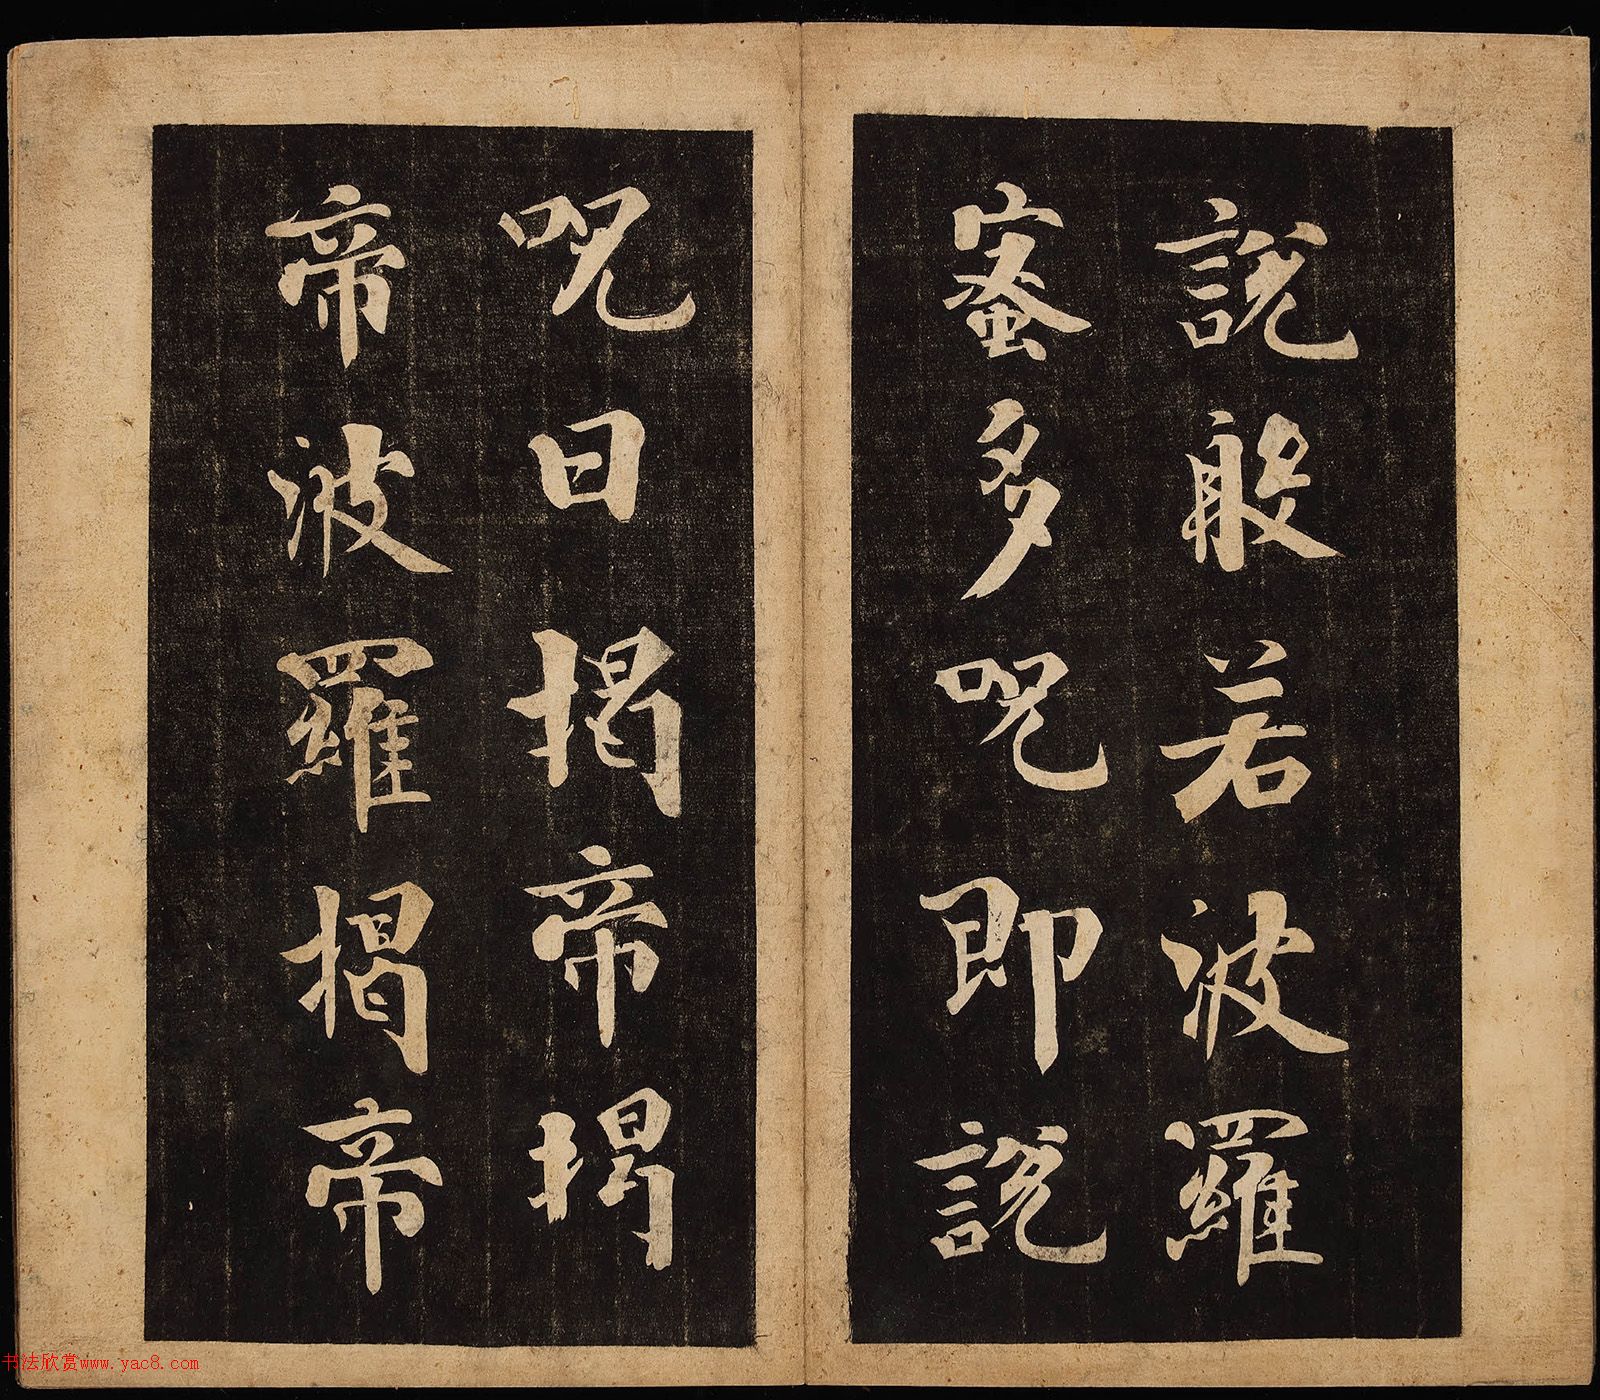 說般若波羅
蜜多呪即說
呪曰揭帝揭
帝波羅揭帝
书法欣赏www.yac8.com